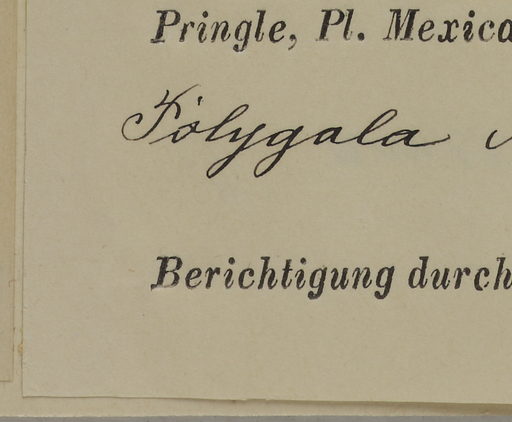 Pringle, Pl. Mexica
Polygala
Berichtigung durch